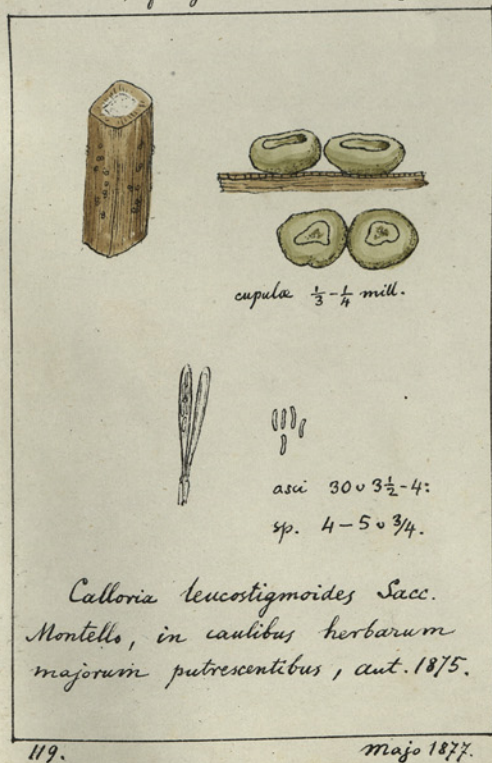 cupulæ 1/3-1/4 mill.
asci 30 ʋ 3 1/2-4:
sp. 4-5 ʋ 3/4.
Calloria leucostigmoides Sacc.
Montello, in caulibus herbarum
majorum putrescentibus, aut. 1875.
119.
Majo 1877.